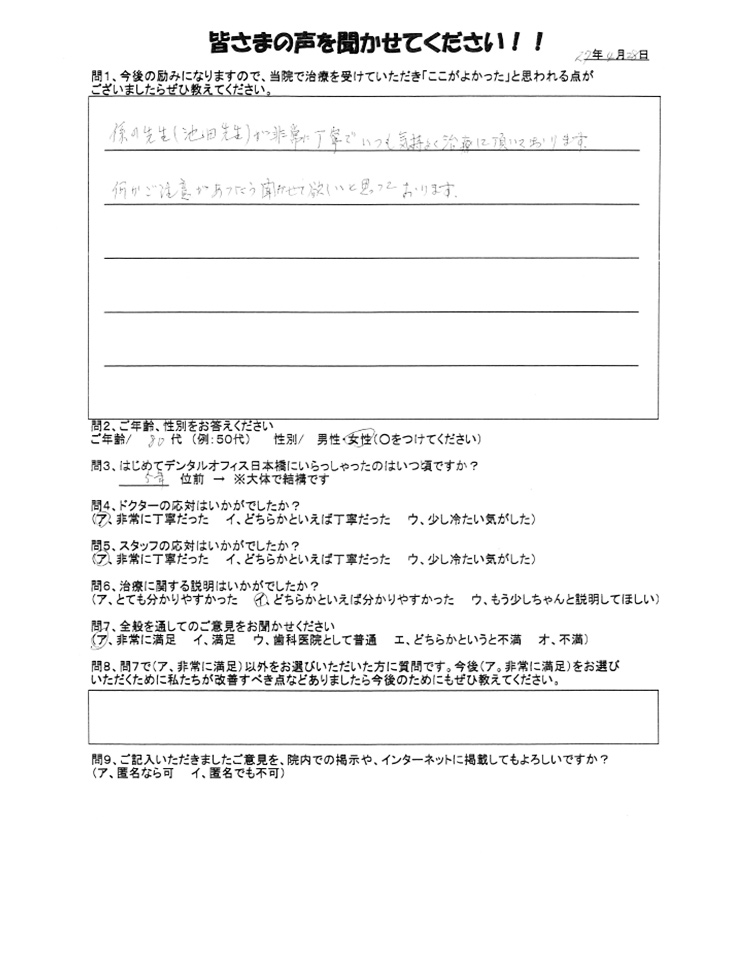 皆さまの声を聞かせてください！！
27年4月28日
問1、今後の励みになりますので、当院で治療を受けていただき「ここがよかった」と思われる点が
ございましたらぜひ教えてください。
係の先生(池田先生)が非常に丁寧でいつも気持よく治療に頂いております。
何かご注意があったら聞かせて欲しいと思っております。
問2、ご年齢、性別をお答えください
ご年齢/ 80 代 (例:50代) 性別/ 男性・女性(〇をつけてください)
問3、はじめてデンタルオフィス日本橋にいらっしゃったのはいつ頃ですか？
5年 位前 → ※大体で結構です
問4、ドクターの応対はいかがでしたか？
(ア、非常に丁寧だった イ、どちらかといえば丁寧だった ウ、少し冷たい気がした)
問5、スタッフの応対はいかがでしたか？
(ア、非常に丁寧だった イ、どちらかといえば丁寧だった ウ、少し冷たい気がした)
問6、治療に関する説明はいかがでしたか？
(ア、とても分かりやすかった イ、どちらかといえば分かりやすかった ウ、もう少しちゃんと説明してほしい)
問7、全般を通してのご意見をお聞かせください
(ア、非常に満足 イ、満足 ウ、歯科医院として普通 エ、どちらかというと不満 オ、不満)
問8、問7で(ア、非常に満足)以外をお選びいただいた方に質問です。今後(ア。非常に満足)をお選び
いただくために私たちが改善すべき点などありましたら今後のためにもぜひ教えてください。
問9、ご記入いただきましたご意見を、院内での掲示や、インターネットに掲載してもよろしいですか？
(ア、匿名なら可 イ、匿名でも不可)